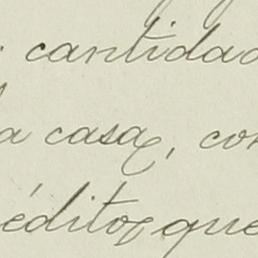 cantidad
a casa, con
éditos que